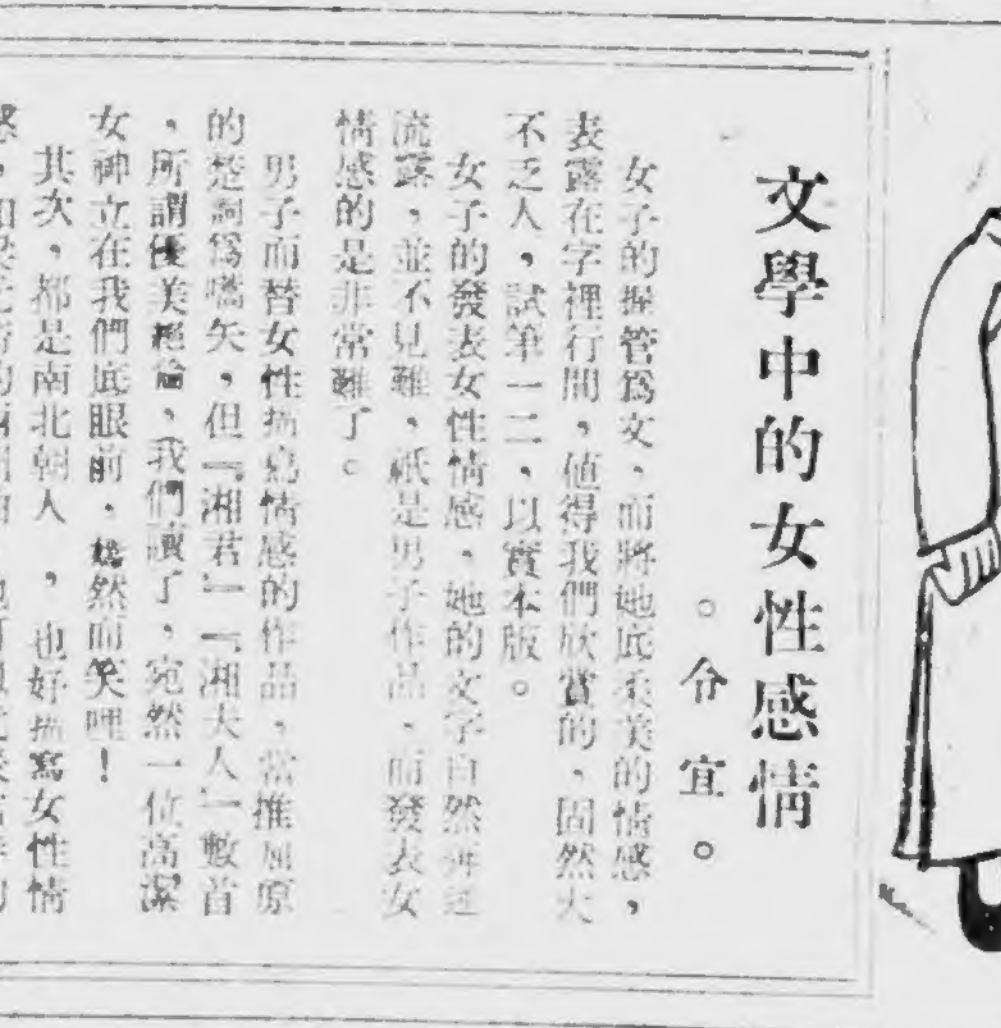 文學中的女性感情
。令宜。
女子的握管爲文，而將她底柔美的情感，
表露在字裡行間，値得我們欣賞的，固然大
不乏人，試筆一二，以實本版。
女子的發表女性情感，她的文字自然
流露，並不見難，祇是男子作品，而發表女
情感的是非常難了。
男子而替女性描寫情感的作品，當推屈原
的楚詞爲嚆矢，但『湘君』『湘夫人』數首
，所謂優美絕倫，我們讀了，宛然一位高潔
女神立在我們底眼前，嫣然而笑哩！
其次，都是南北朝人，也好描寫女性情
感，如